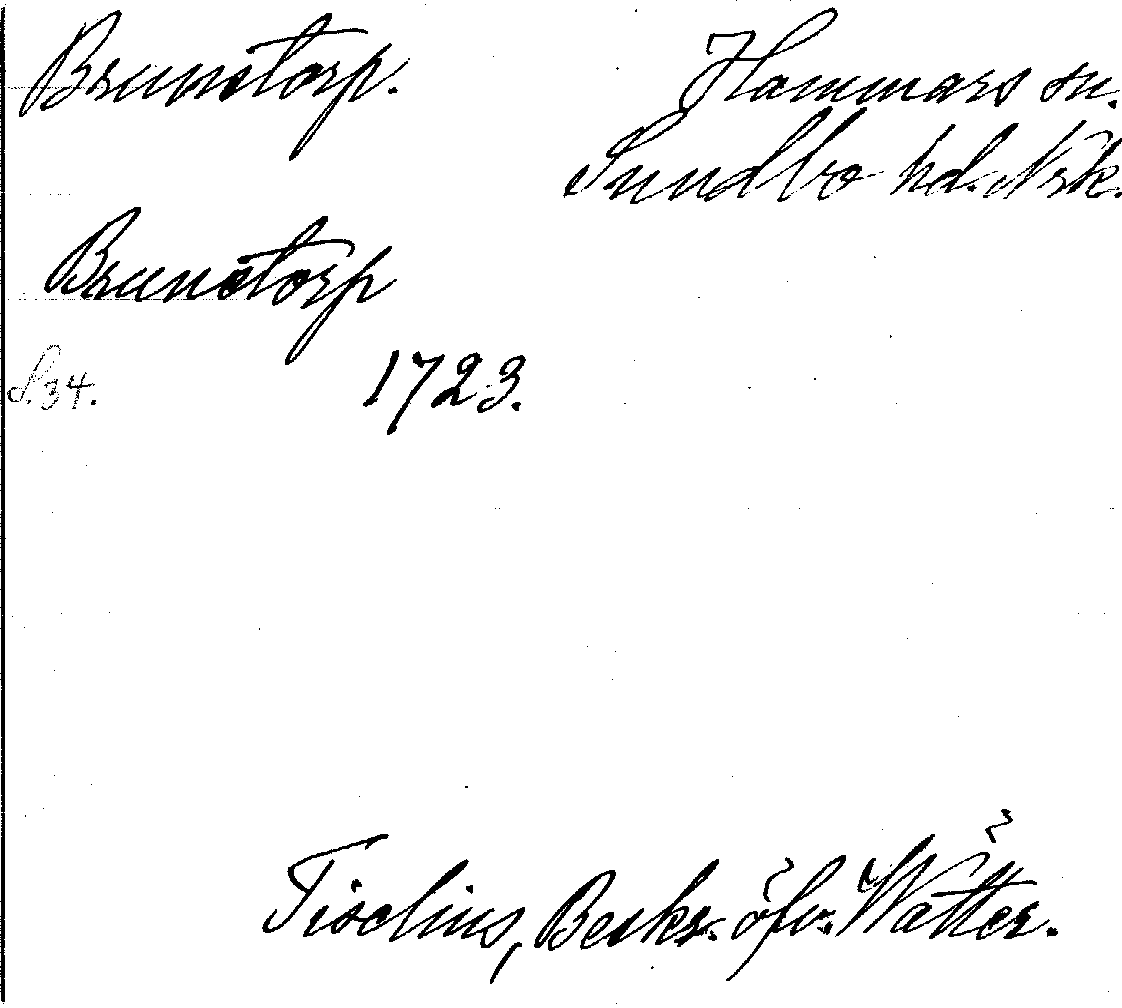 Brunstorp. Hammars sn.
Sundbo hd. Nrk.
Brunstorp
S. 34. 1723.
Tiselius, Beskr. öfv. Wätter.